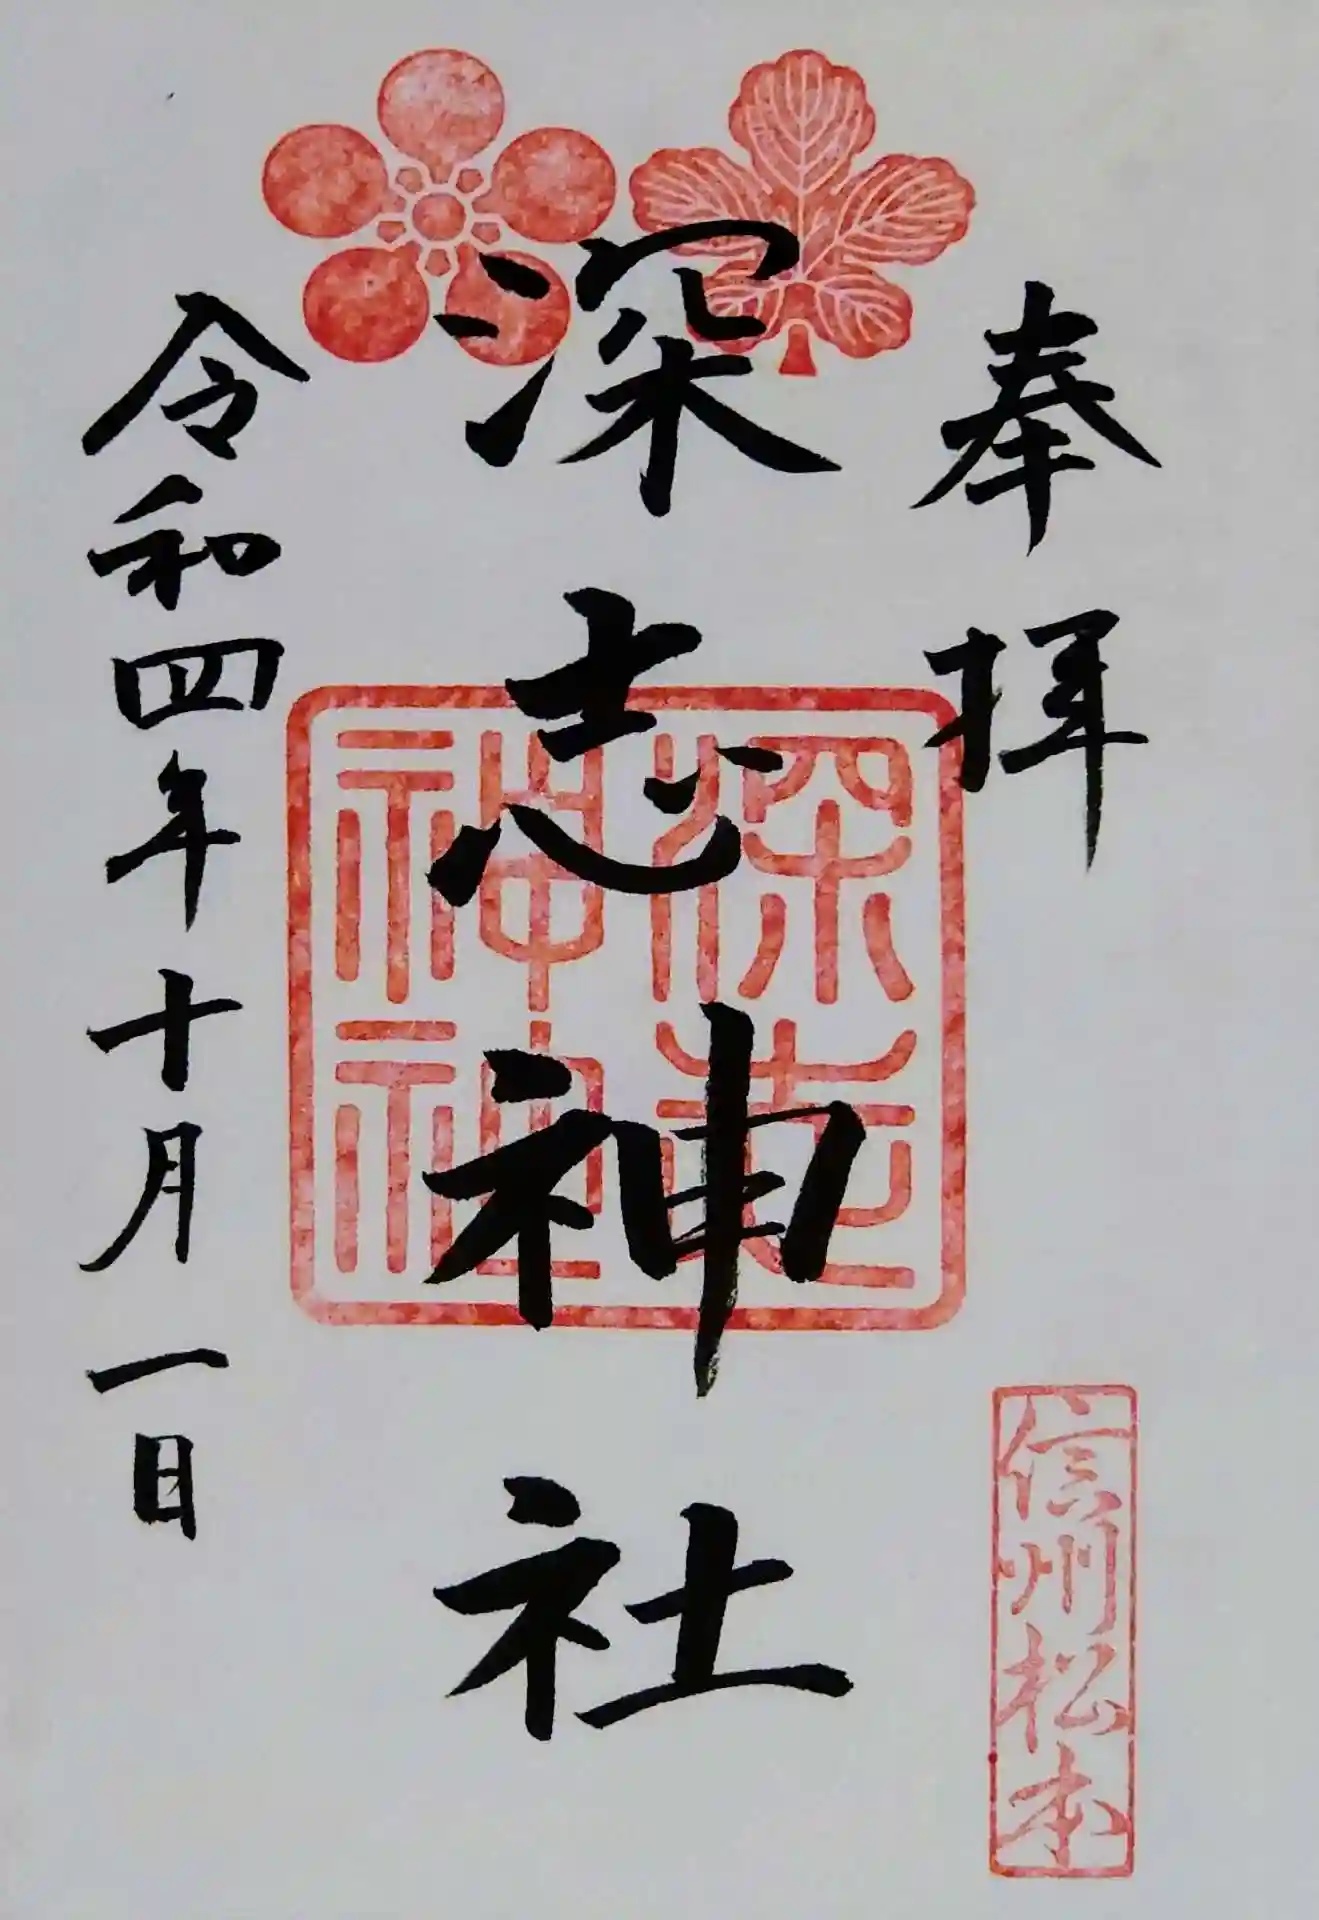 奉拝
信州松本
深志神社
深志神社
令和四年十月一日